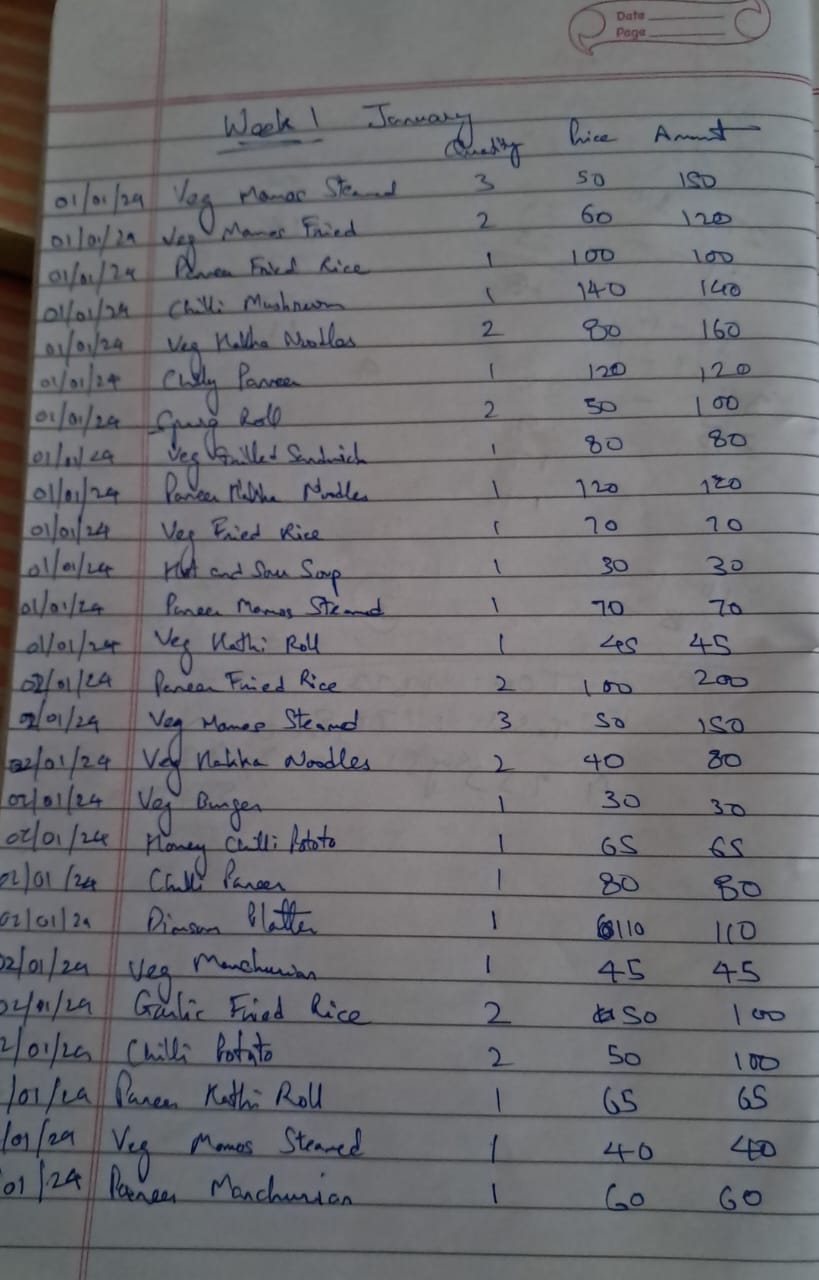 Date
Page
Week 1 January
Quantity Price Amount
01/01/24 Veg Momos Steamed 3 50 150
01/01/24 Veg Momos Fried 2 60 120
01/01/24 Paneer Fried Rice 1 100 100
01/01/24 Chilli Mushroom 1 140 140
01/01/24 Veg Hakka Noodles 2 80 160
01/01/24 Chilly Paneer 1 120 120
01/01/24 Spring Roll 2 50 100
01/01/24 Veg Grilled Sandwich 1 80 80
01/01/24 Paneer Hakka Noodles 1 120 120
01/01/24 Veg Fried Rice 1 70 70
01/01/24 Hot and Sour Soup 1 30 30
01/01/24 Paneer Momos Steamed 1 70 70
01/01/24 Veg Kathi Roll 1 45 45
02/01/24 Paneer Fried Rice 2 100 200
02/01/24 Veg Momos Steamed 3 50 150
02/01/24 Veg Hakka Noodles 2 40 80
02/01/24 Veg Burger 1 30 30
02/01/24 Honey Chilli Potato 1 65 65
02/01/24 Chilli Paneer 1 80 80
02/01/24 Dimsum Platter 1 110 110
02/01/24 Veg Manchurian 1 45 45
02/01/24 Garlic Fried Rice 2 50 100
2/01/24 Chilli Potato 2 50 100
/01/24 Paneer Kathi Roll 1 65 65
/01/24 Veg Momos Steamed 1 40 40
01/24 Paneer Manchurian 1 60 60